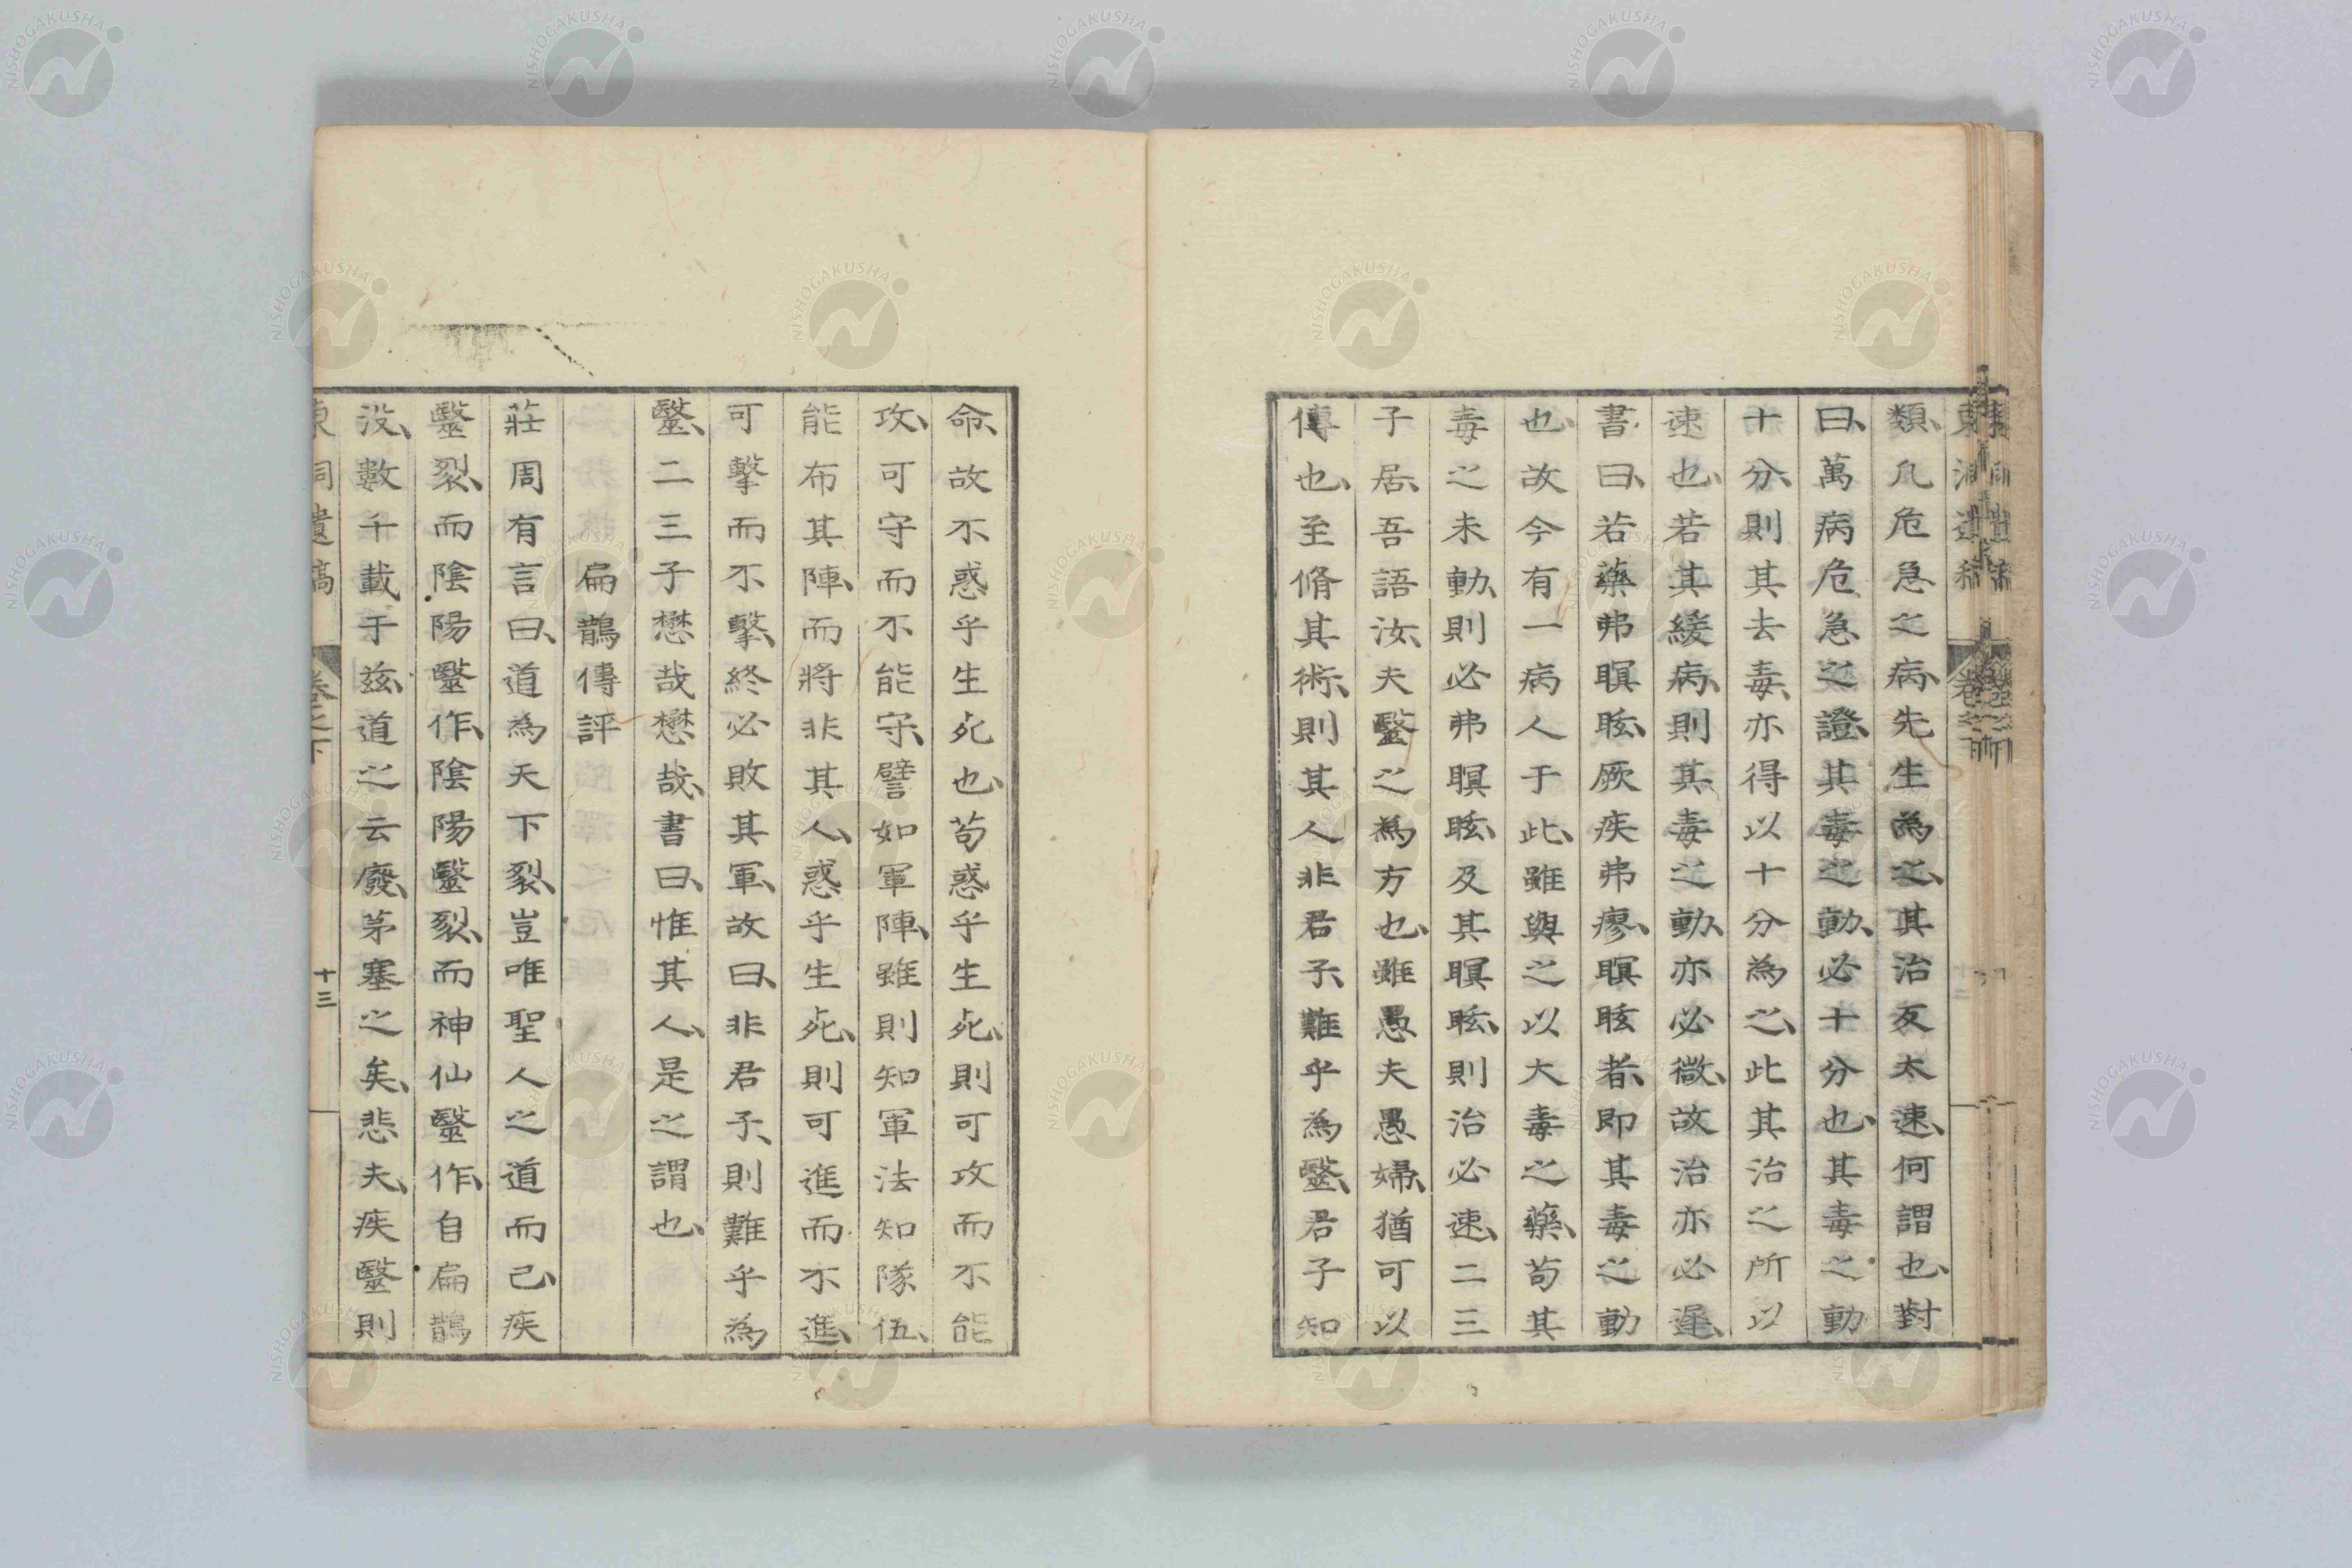 類、凡危急之病、先生為之、其治反太速、何謂也、對
曰、萬病危急之證、其毒之動、必十分也、其毒之動
十分、則其去毒、亦得以十分為之、此其治之所以
速也、若其緩病、則其毒之動、亦必微、故治亦必遲、
書曰、若藥弗瞑眩、厥疾弗瘳、瞑眩者、即其毒之動
也、故今有一病人于此、雖與之以大毒之藥、苟其
毒之未動、則必弗瞑眩、及其瞑眩、則治必速、二三
子居、吾語汝、夫毉之為方也、雖愚夫愚婦、猶可以
傳也、至脩其術、則其人非君子、難乎為毉、君子知
命、故不惑乎生死也、苟惑乎生死、則可攻而不能
攻、可守而不能守、譬如軍陣、雖則知軍法知隊伍、
能布其陣、而將非其人、惑乎生死、則可進而不進、
可擊而不擊、終必敗其軍、故曰、非君子、則難乎為
毉、二三子懋哉懋哉、書曰、惟其人、是之謂也、
扁鵲傳評
莊周有言曰、道為天下裂、豈唯聖人之道而已、疾
毉裂、而陰陽毉作、陰陽毉裂、而神仙毉作、自扁鵲
没、數千載于玆、道之云廢、茅塞之矣、悲夫、疾毉則
東洞遺稿 卷之下 十三
NISHOGAKUSHA